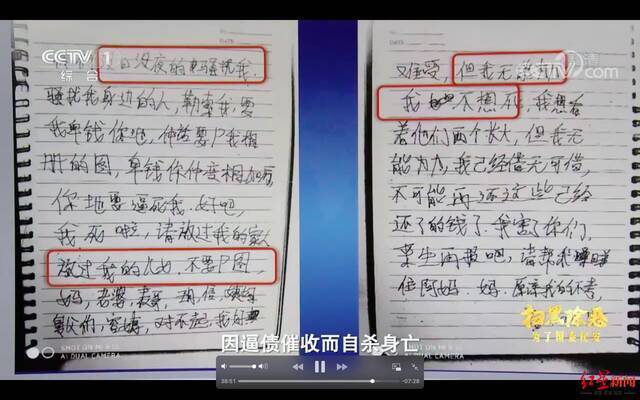 CCTV 1
综合
没夜的骚扰我,
骚扰我身边的人,勒索我,要
我单钱你地,仲话要P我相
册的图,单钱你仲变相加
你地要逼死我,好吧,
我死啦,请放过我的家人
放过我的 不要P图,
妈,老婆,
对不起,我
难受,但我无
我 不想死,我想看
着他们两个长大,但我无
能为力,我已经借无可借,
不可能再还这些已经
还了的钱了,我害了你们,
来生再报吧,请帮我
住阿妈,妈,原谅我的不孝,
SHOT ON MI 8
AI DUAL CAMERA
SHOT ON MI 8
AI DUAL CAMERA
因逼债催收而自杀身亡
扫黑除恶
为了国泰民安
38:51
-07:28
红星新闻